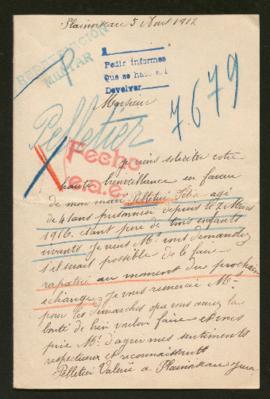 Plainoiseau 5 Août 1917
REPRODUCCIÓN
MILITAR
Pedir informes
Que se haga
Devolver
Monsieur
7679
Pelletier
Fecha
verde
je viens solliciter votre
haute bienveillance en faveur
de mon mari Pelletier
de 41 ans prisonnier depuis le 2 Mars
1916. Etant père de trois enfants
vivants je viens Mr. vous demander
s'il serait possible de le faire
rapatrier au moment du prochain
échange. Je vous remercie Mr.
pour les démarches que vous aurez la
bonté de bien vouloir faire et vous
prie Mr. d'agréer mes sentiments
respectueux et reconnaissants
Pelletier Valérie à Plainoiseau Jura